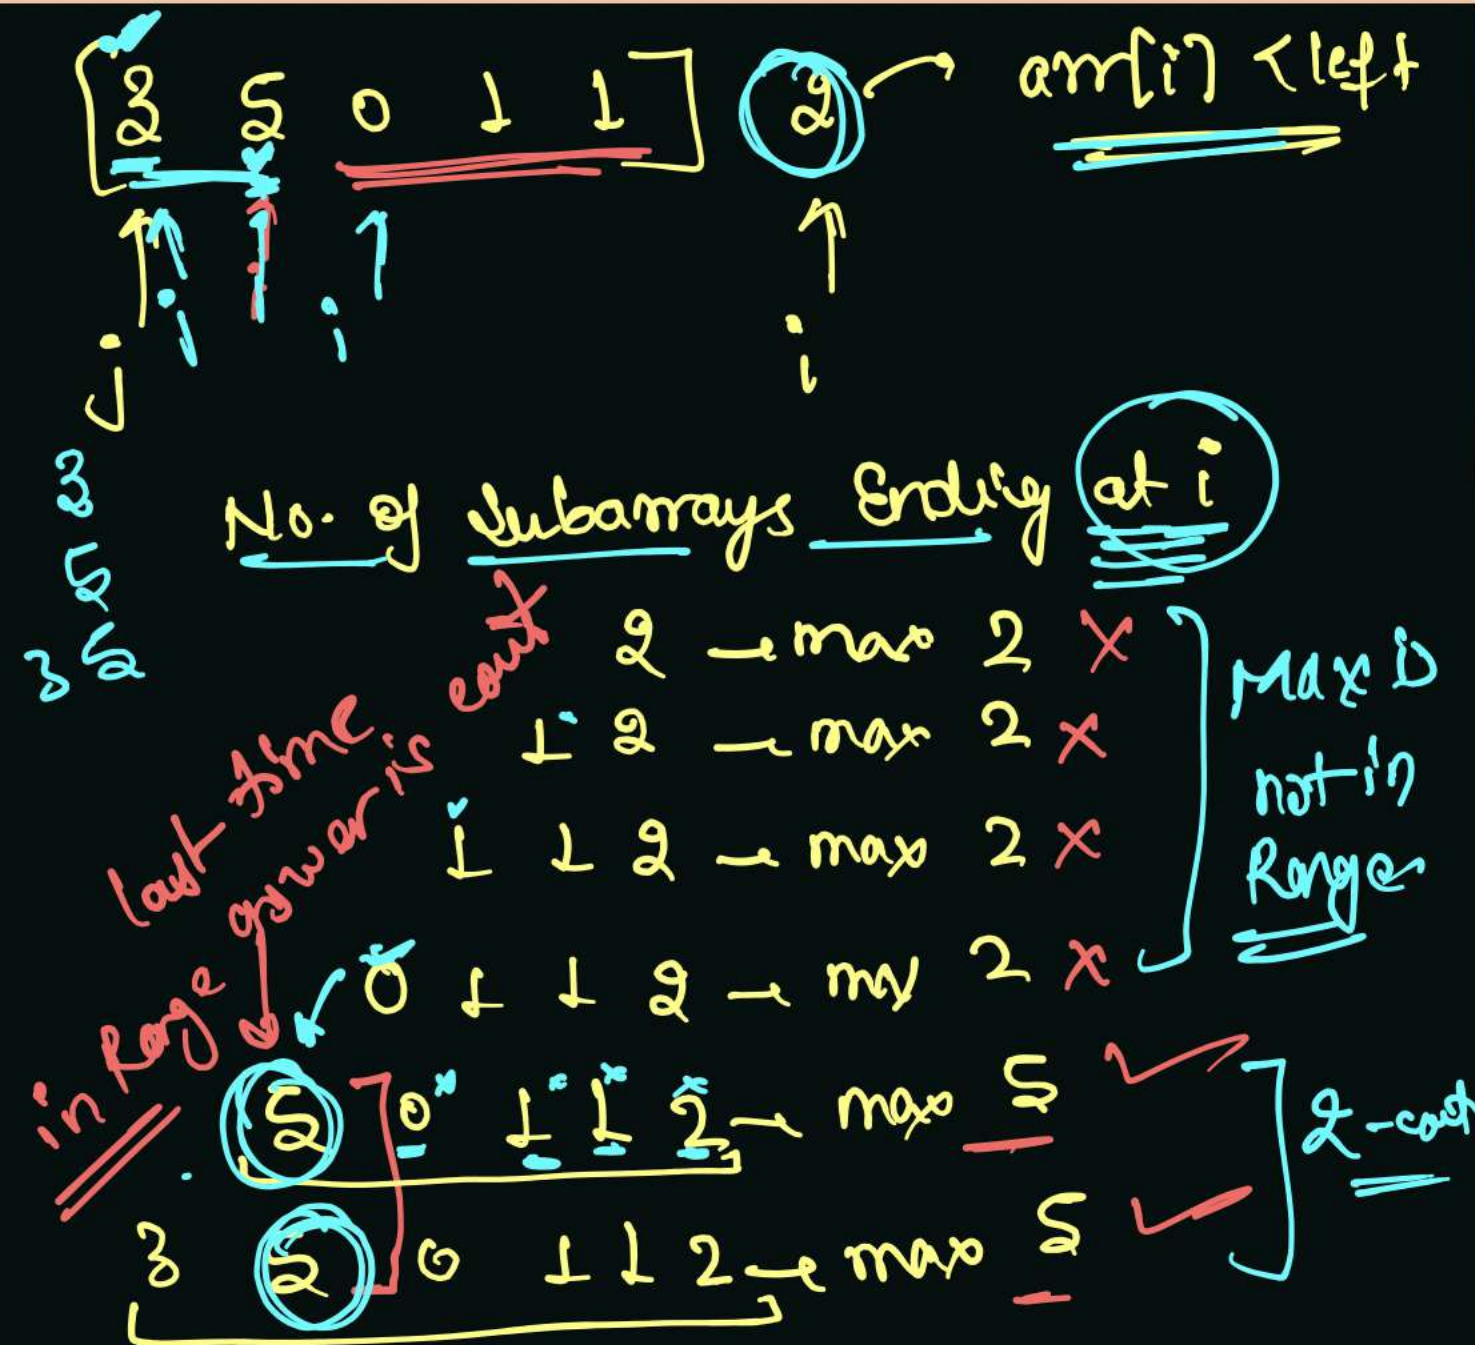 [3 5 0 1 1] 2 → arr[i] < left
j i i i
3
5
3 5
No. of Subarrays Ending at i
2 → max 2 ×
1 2 → max 2 ×
1 1 2 → max 2 ×
0 1 1 2 → mx 2 ×
Max is
not in
Range
last time
in Range answer is count
5 0 1 1 2 → max 5 ✓
3 5 0 1 1 2 → max 5 ✓
2 - count